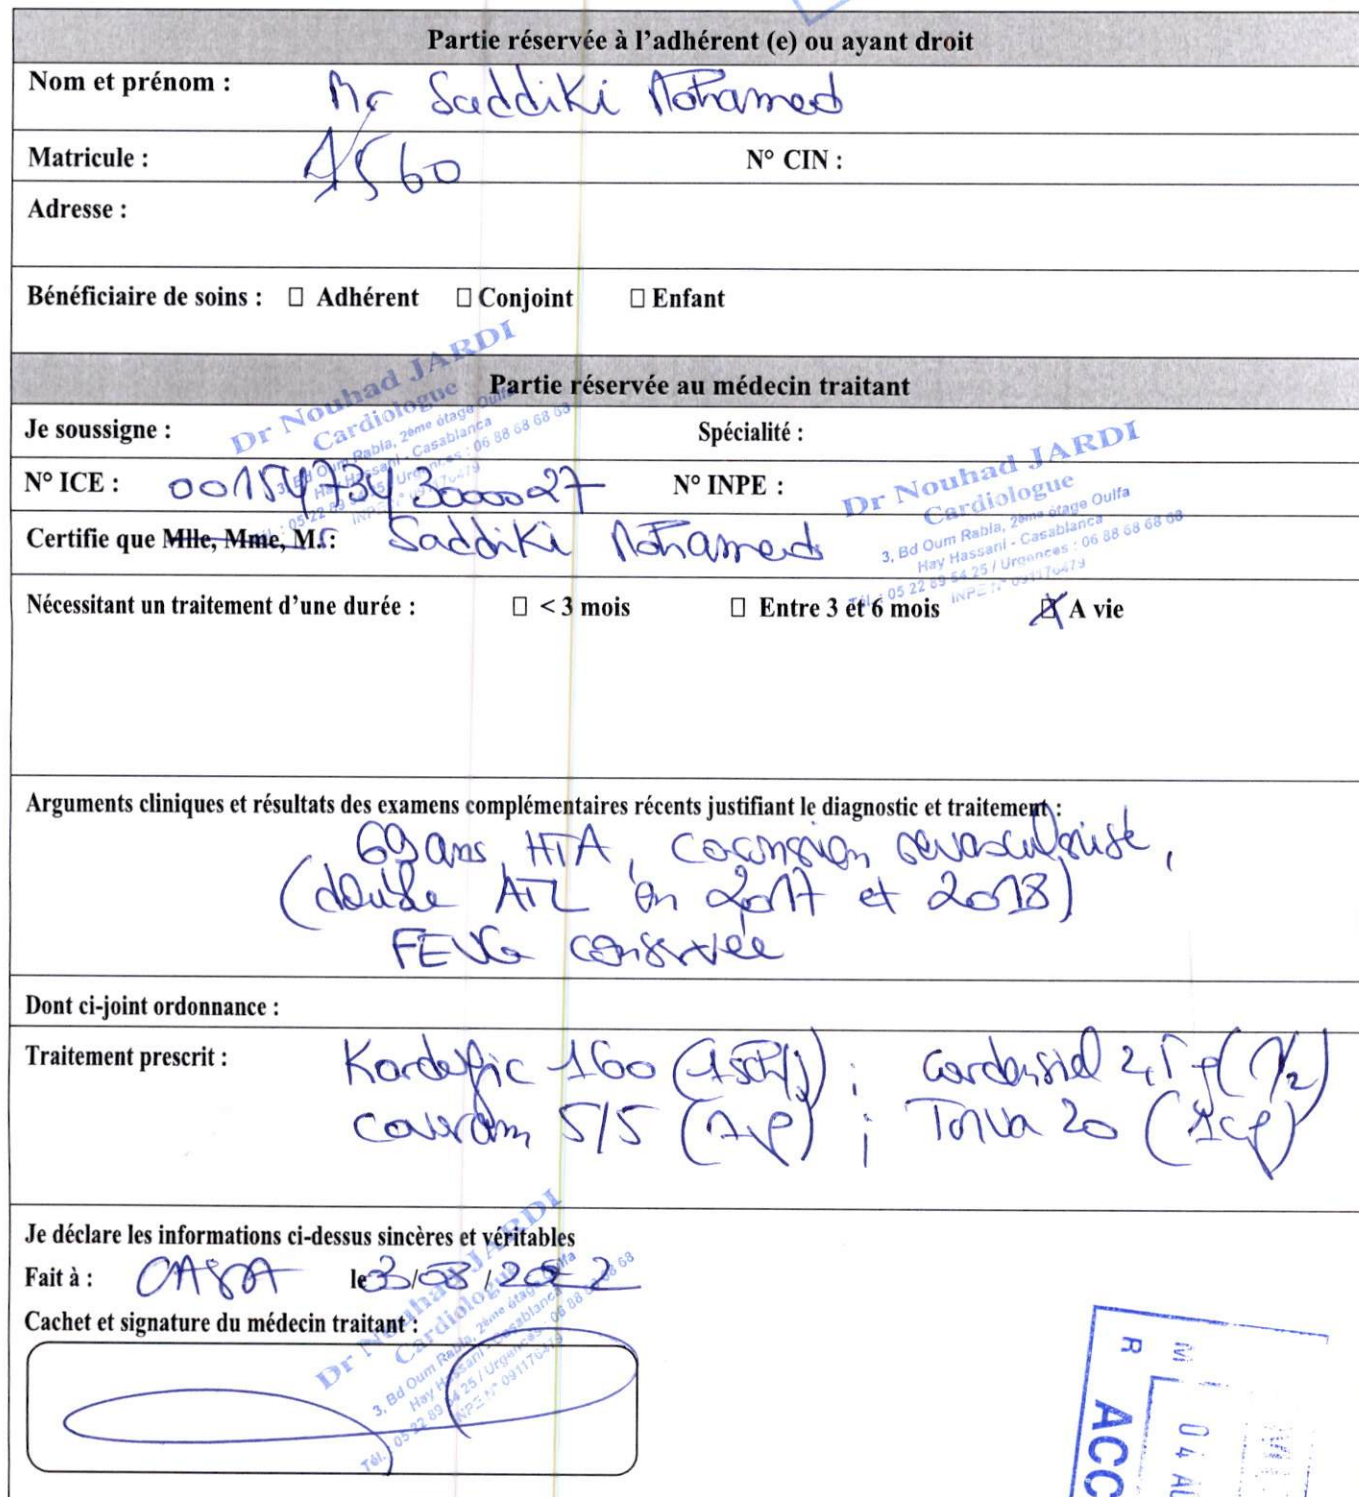 Partie réservée à l'adhérent (e) ou ayant droit
Nom et prénom : Mr Saddiki Mohamed
Matricule : 1560 N° CIN :
Adresse :
Bénéficiaire de soins : □ Adhérent □ Conjoint □ Enfant
Dr Nouhad JARDI
Cardiologue
3, Bd Oum Rabia, 2ème étage Oulfa
Hay Hassani - Casablanca
Tél. : 05 22 89 54 25 / Urgences : 06 88 68 68 68
INPE N° 091170479
Partie réservée au médecin traitant
Je soussigne : Spécialité :
N° ICE : 001547343000027 N° INPE :
Dr Nouhad JARDI
Cardiologue
3, Bd Oum Rabia, 2ème étage Oulfa
Hay Hassani - Casablanca
Tél. : 05 22 89 54 25 / Urgences : 06 88 68 68 68
INPE N° 091170479
Certifie que Mlle, Mme, M. : Saddiki Mohamed
Nécessitant un traitement d'une durée : □ < 3 mois □ Entre 3 et 6 mois ☒ A vie
Arguments cliniques et résultats des examens complémentaires récents justifiant le diagnostic et traitement :
69 ans, HTA, coronarien revascularisé,
(double ATL en 2017 et 2018)
FEVG conservée
Dont ci-joint ordonnance :
Traitement prescrit : Kardegic 160 (1 sch/j) ; Cardensiel 2,5 (1/2)
Coveram 5/5 (1cp) ; Torva 20 (1cp)
Je déclare les informations ci-dessus sincères et véritables
Fait à : CASA le 3/08/2022
Cachet et signature du médecin traitant :
Dr Nouhad JARDI
Cardiologue
3, Bd Oum Rabia, 2ème étage Oulfa
Hay Hassani - Casablanca
Tél. : 05 22 89 54 25 / Urgences : 06 88 68 68 68
INPE N° 091170479
04 A
ACC